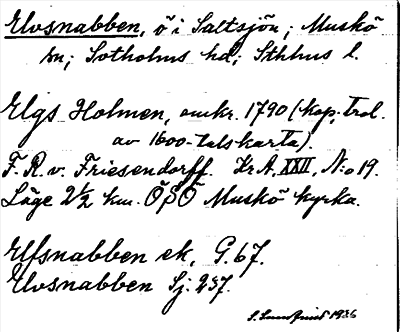 Elvsnabben, ö i Saltsjön; Muskö
sn; Sotholms hd; Sthlms l.
Elgs Holmen, omkr. 1790 (kop. trol.
av 1600-talskarta).
F. R. v. Friesendorff. Kr.A. XXII, N:o 19.
Läge 2½ km. ÖSÖ Muskö kyrka.
Elfsnabben ek. G. 67.
Elvsnabben Sj. 237.
S. Lundqvist 1936